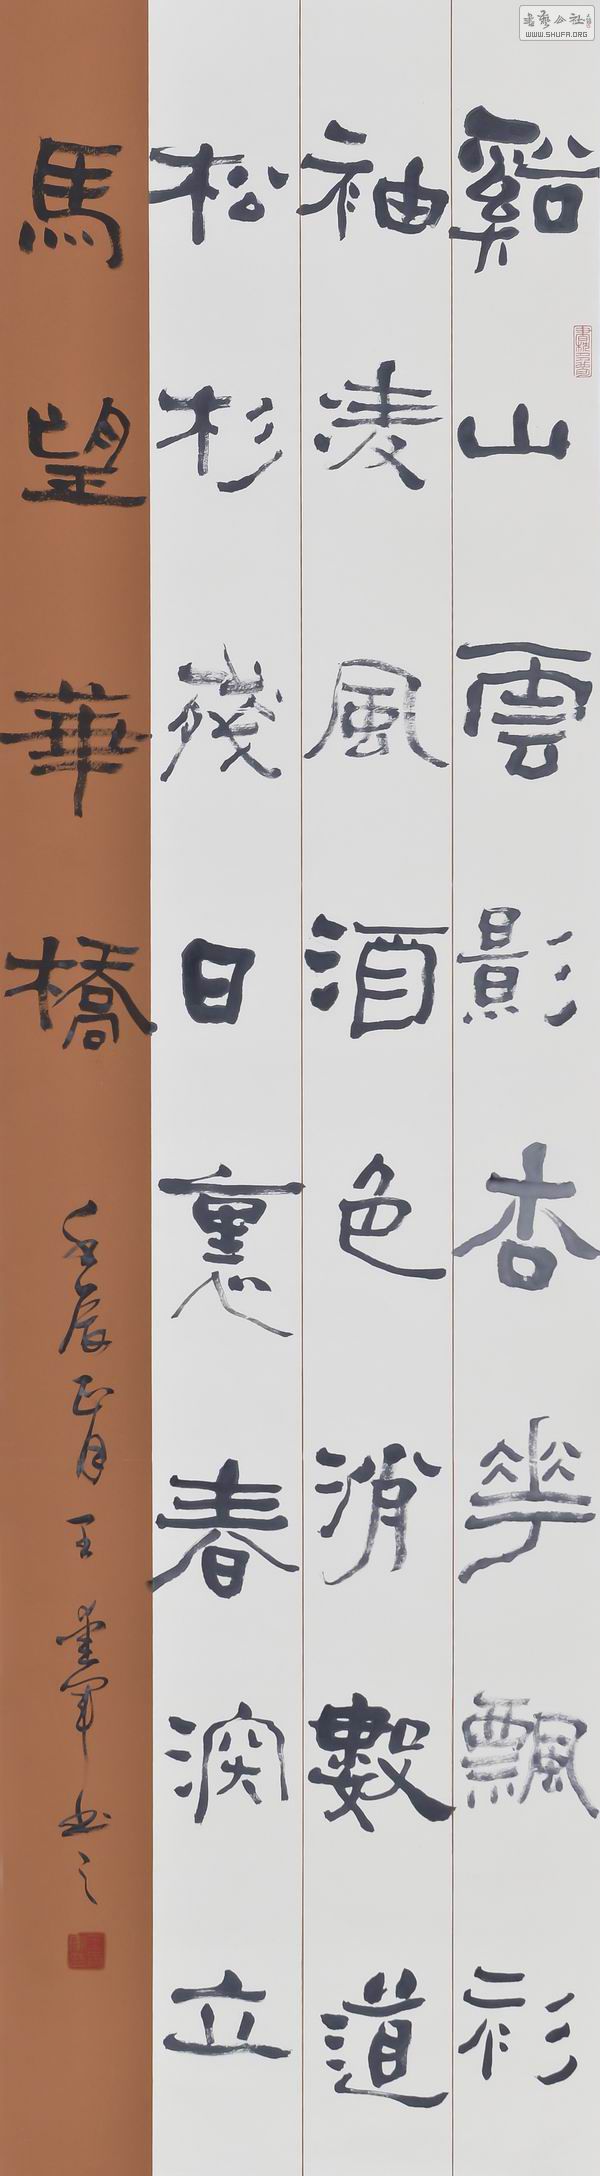 谿山雲影杏花飄衫
袖凌風酒色消數道
松杉殘日裏春深立
馬望華橋
壬辰正月王軍書之
書藝公社
WWW.SHUFA.ORG